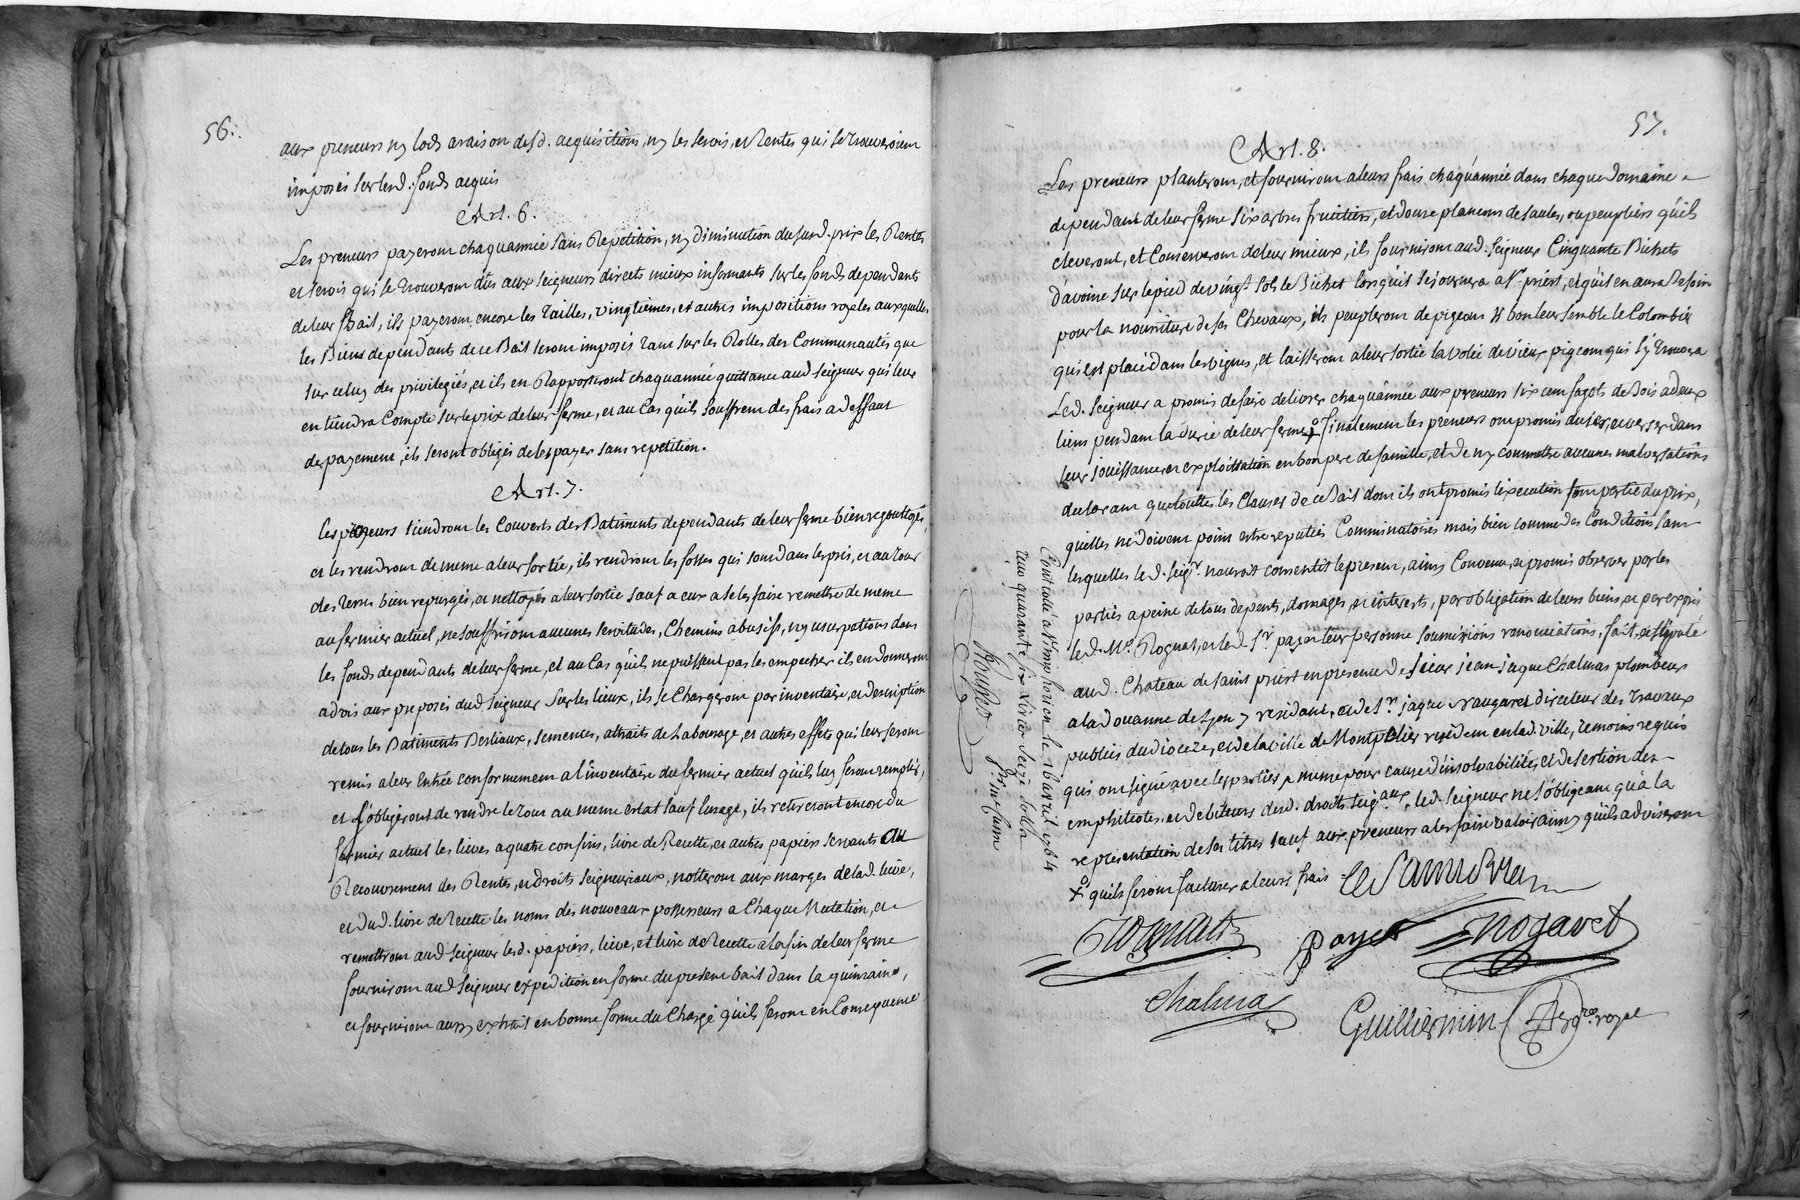 56.
aux preneurs ny lods a raison desd. acquisitions, ny les servis, et Rentes qui se trouveroient
imposés sur lesd. fonds acquis
Art. 6.
Les preneurs payeront chaquannée sans Repetition, ny diminution du susd. prix les Rentes
et servis qui se trouveront dûs aux seigneurs directs mieux informants sur les fonds dependants
de leur Bail, ils payeront encore les tailles, vingtiemes, et autres impositions royales auxquelles
les Biens dependants de ce Bail seront imposés tant sur les Rolles des Communautés que
sur celuy des privilegiés, et ils en Rapporteront chaquannée quittance aud seigneur qui leur
en tiendra Compte sur le prix de leur ferme, et au Cas qu'ils souffrent des frais a deffaut
de payement, ils seront obligés de les payer sans repetition.
Art. 7.
Les preneurs tiendront les Couverts des Batiments dependants de leur ferme bien regouttoyés,
et les rendront de meme a leur sortie, ils rendront les fosses qui sont dans les prés, et autour
des terres bien repurgés, et nettoyés a leur sortie sauf a eux a se les faire remettre de meme
au fermier actuel, ne souffriront aucunes servitudes, Chemins abusifs, ny usurpations dans
les fonds dependants de leur ferme, et au Cas qu'ils ne puissent pas les empecher ils en donneront
advis aux preposés dud seigneur sur les lieux, ils se Chargeront par inventaire, et description
de tous les Batiments Bestiaux, semences, attraits de Labourage, et autres effets qui leur seront
remis a leur Entrée conformement a l'inventaire du fermier actuel qu'ils luy feront remplir,
et s'obligeront de rendre le tout au meme estat sauf l'usage, ils retireront encore du
fermier actuel les lieves a quatre confins, livre de Recette, et autres papiers servants au
Recouvrement des Rentes, et droits seigneuriaux, notteront aux marges de lad. lieve,
et dud. livre de Recette les noms des nouveaux possesseurs a Chaque Mutation, et
remettront aud seigneur lesd. papiers, lieve, et livre de Recette a la fin de leur ferme
fourniront aud seigneur expedition en forme du present bail dans la quinzaine,
et fourniront aussy extrait en bonne forme du Chargé qu'ils feront en Consequence
57.
Art. 8.
Les preneurs planteront, et fourniront a leurs frais chaquánnée dans chaque domaine
dependant de leur ferme six arbres fruitiers, et douse plancons de saules, ou peupliers qu'ils
eleveront, et Conserveront de leur mieux, ils fourniront aud. seigneur Cinquante Bichets
d'avoine sur le pied de vingt sols le Bichet lorsqu'il sejournera a St. priest, et qu'il en aura Besoin
pour la nourriture de ses Chevaux, ils peupleront de pigeons si bon leur semble le Colombier
qui est placé dans les vignes, et laisseront a leur sortie la volée de vieux pigeons qui s'y trouvera
Led. seigneur a promis de faire delivrer chaquánnée aux preneurs six cent fagots de Bois a deux
liens pendant la durée de leur ferme finalement les preneurs ont promis d'user, et verser dans
leur jouissance et exploittation en bon pere de famille, et de n'y commettre aucunes malversations
declarant que touttes les Clauses de ce Bail dont ils ont promis l'execution font partie du prix,
quelles ne doivent point estre reputées Comminatoires mais bien comme des Conditions sans
lesquelles led. seigr. nauroit consentit le present, ainsi Convenu, et promis observer par les
parties a peine de tous depents, domages, et interets, par obligation de leurs biens, et par exprès
led. Me. Rognat, et led. Sr. payen leur personne soumissions renonciations, fait, et stipulé
aud. Chateau de saint priest en presence de sieur jean jaque Chalmas plombeur
a la douanne de Lyon y residant, et de Sr. jaque Nougaret directeur des travaux
publics du dioceze, et de la ville de Montpelier resident en lad. ville, temoins requis
qui ont signé avec les parties meme pour cause d'insolvabilité, et desertion des
emphiteotes, et debiteurs desd. droits seigaux, led. seigneur ne s'obligeant qu'a la
representation de ses titres sauf aux preneurs a les faire valoir ainsy qu'ils adviseront
quils feront facturer a leurs frais
Rognat
payen
Nogaret
Chalma
Guilliermin
Nore. royal
Controllé a St simphorien le 16 avril 1764
Reçu quarante six livres seize sols